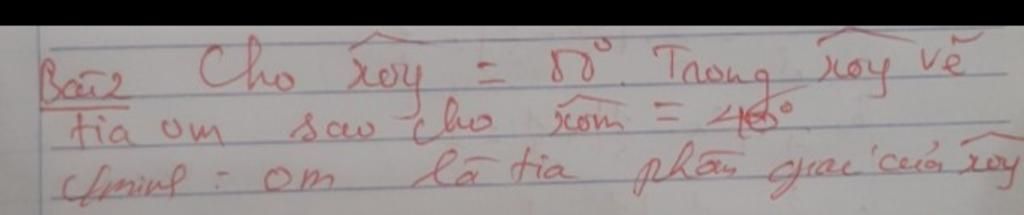 Bài 2 Cho xoy = 80°. Trong xoy vẽ
tia om sao cho xom = 40°
C/minh: om là tia phân giác của xoy